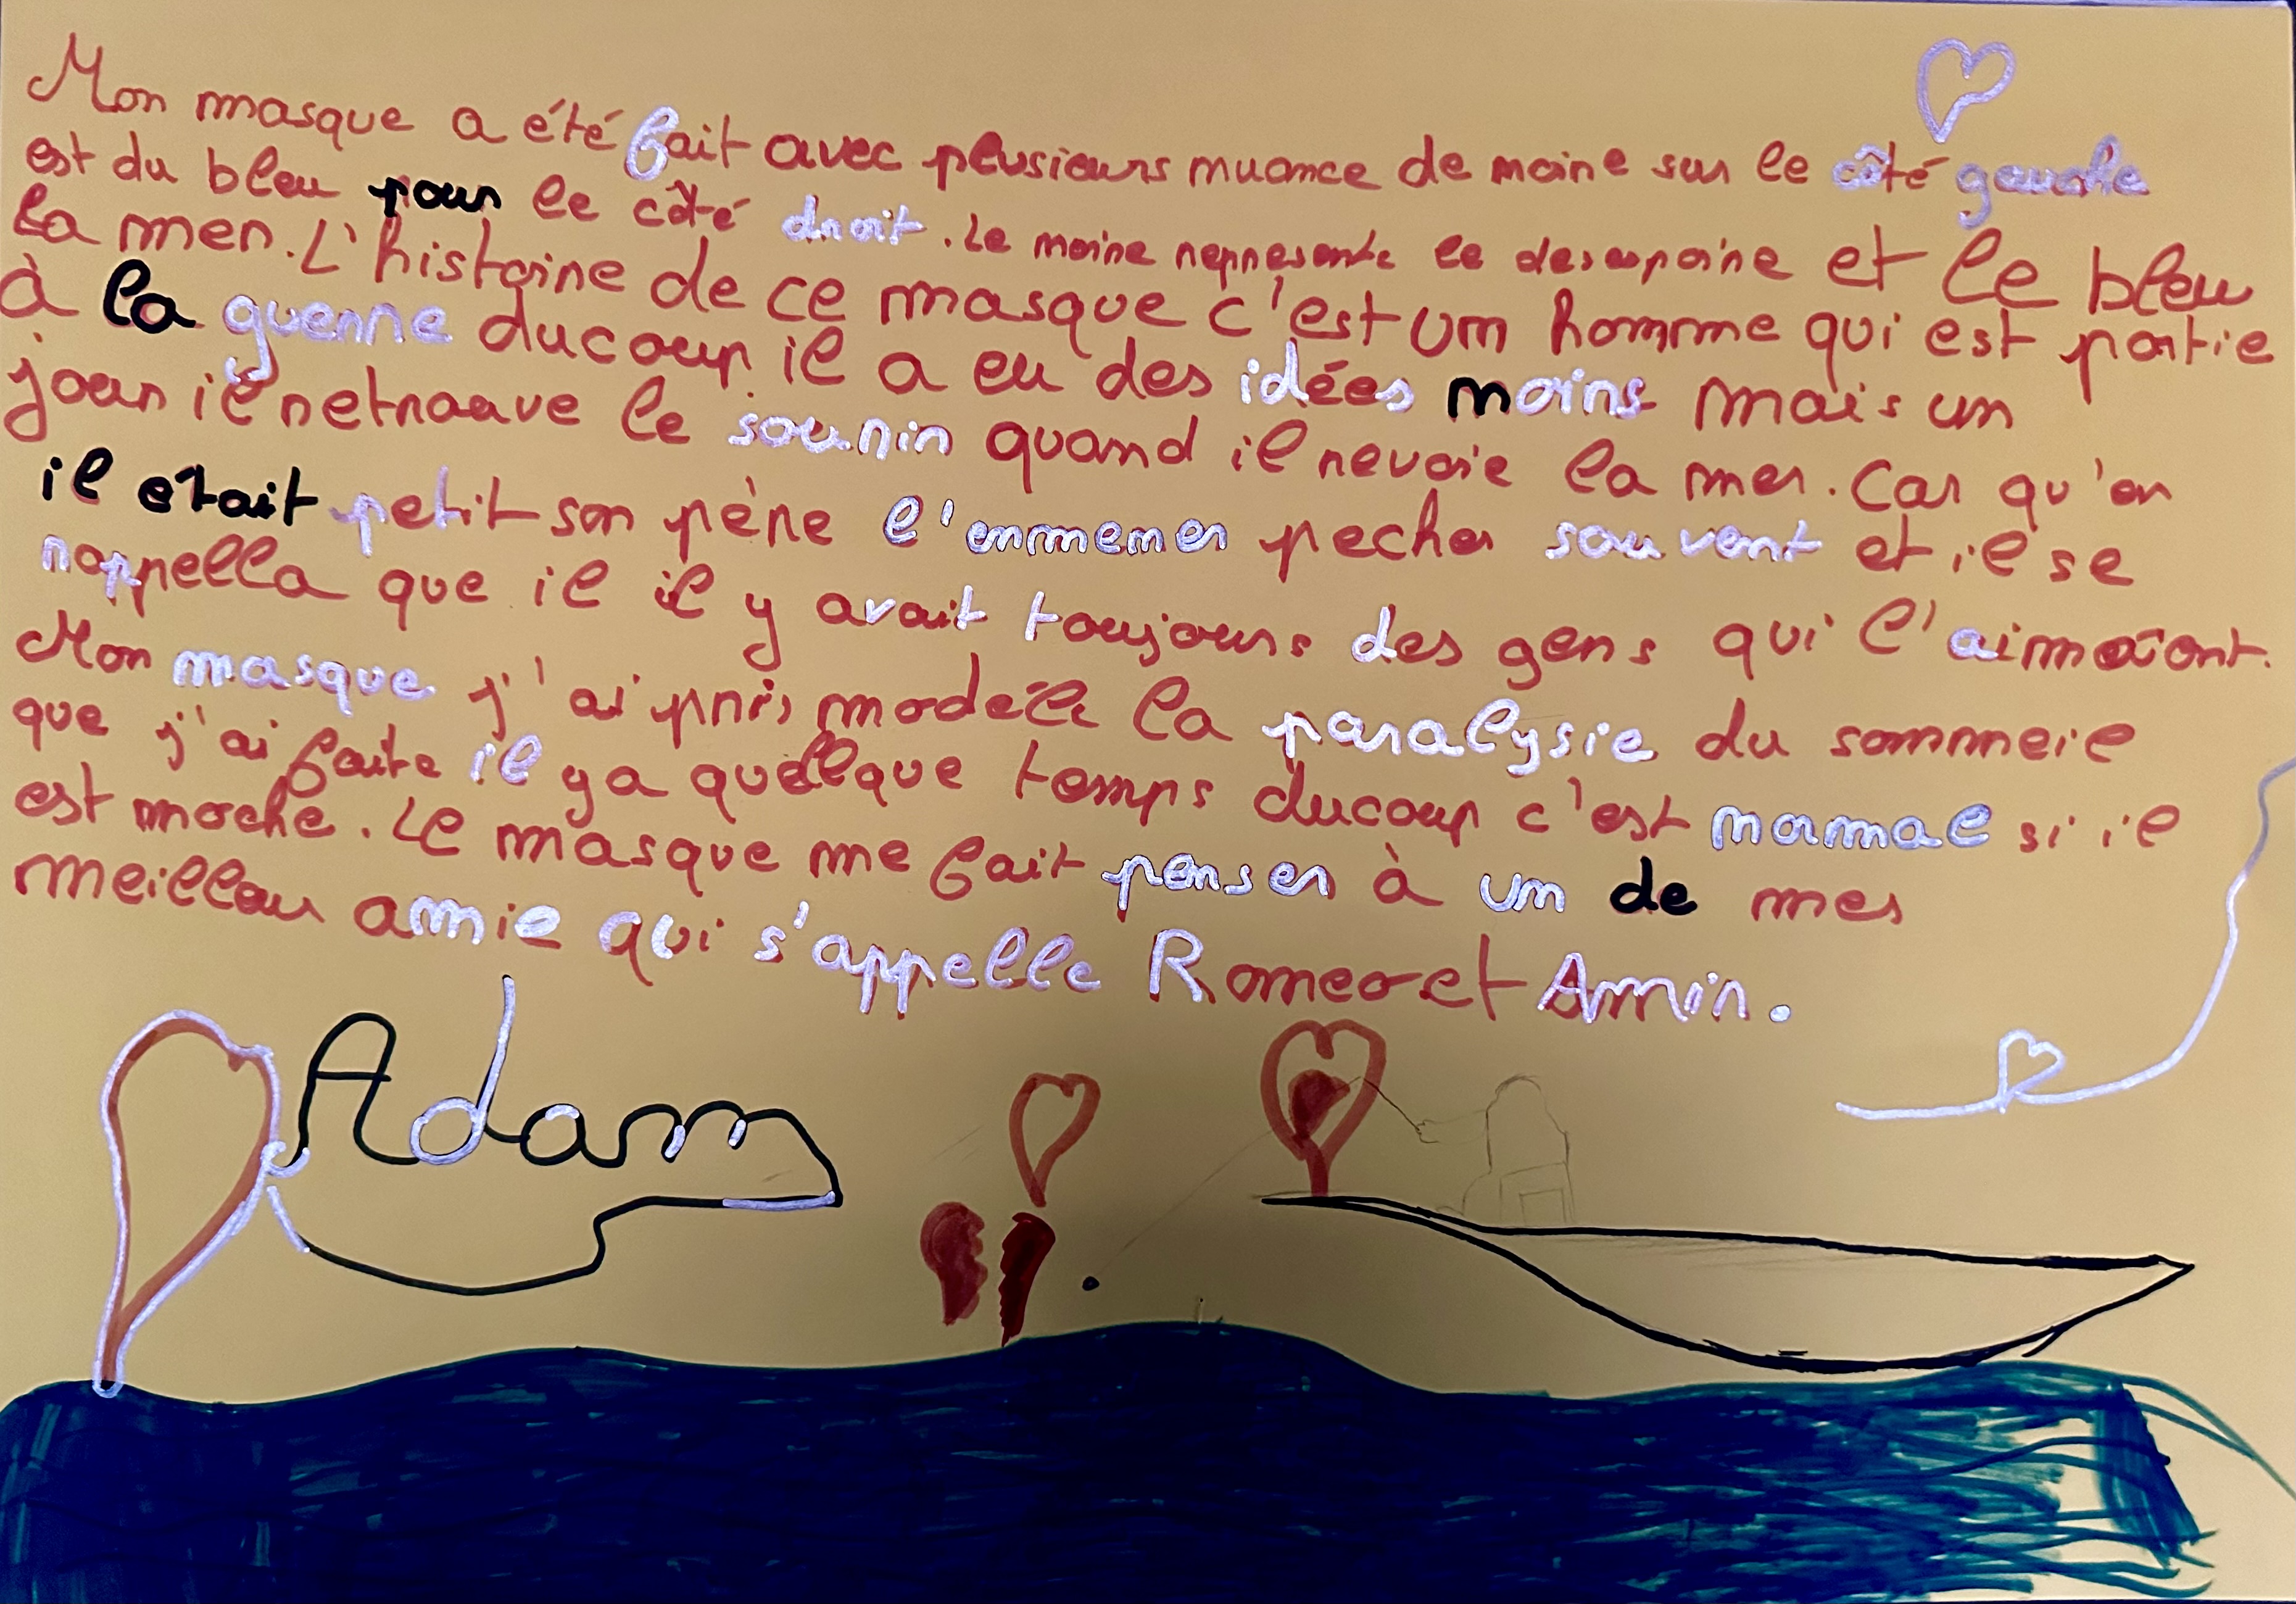 Mon masque a été fait avec plusieurs nuance de noire sur le côté gauche
est du bleu pour le côté droit. Le noire represente le desespoire et le bleu
la mer. L'histoire de ce masque c'est un homme qui est partie
à la guerre ducoup il a eu des idées noirs mais un
jour il retrouve le sourir quand il revoie la mer. Car qu'on
il etait petit son père l'emmemer pecher souvent et il se
rappella que il il y avait toujours des gens qui l'aimaient.
Mon masque j'ai pris modèle la paralysie du sommeil
que j'ai faite il ya quelque temps ducoup c'est normal si il
est moche. Le masque me fait penser à un de mes
meilleur amie qui s'appelle Romeo et Amin.
Adam